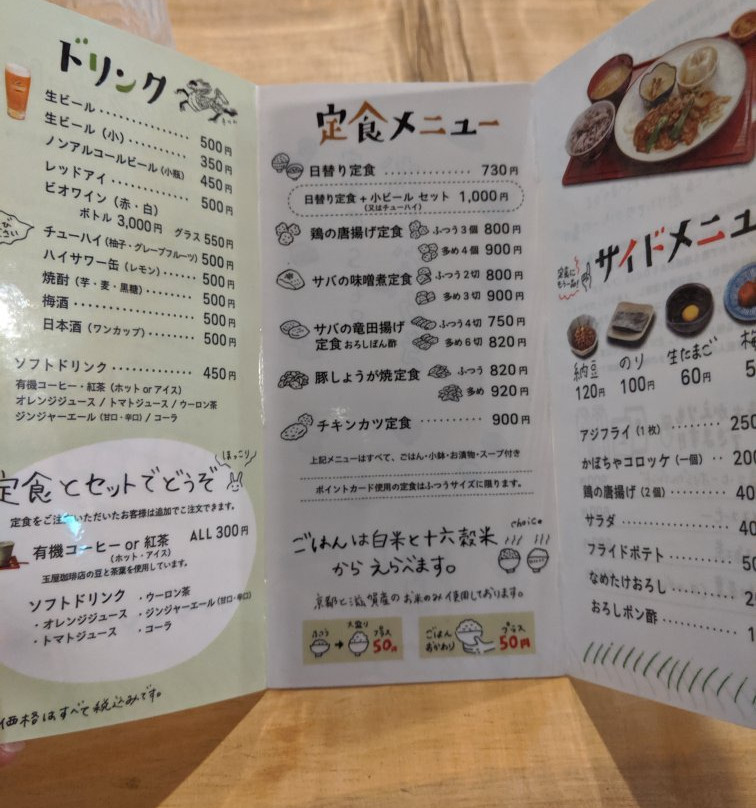 ドリンク
生ビール 500円
生ビール（小） 350円
ノンアルコールビール（小瓶） 450円
レッドアイ 500円
ビオワイン（赤・白）
ボトル 3,000円 グラス 550円
チューハイ（柚子・グレープフルーツ） 500円
ハイサワー缶（レモン） 500円
焼酎（芋・麦・黒糖） 500円
梅酒 500円
日本酒（ワンカップ） 500円
ソフトドリンク 450円
有機コーヒー・紅茶（ホット or アイス）
オレンジジュース / トマトジュース / ウーロン茶
ジンジャーエール（甘口・辛口）/ コーラ
ほっこり
定食とセットでどうぞ
定食をご注文いただいたお客様は追加でご注文できます。
有機コーヒー or 紅茶 ALL 300円
（ホット・アイス）
玉屋珈琲店の豆と茶葉を使用しています。
ソフトドリンク ・ウーロン茶
・オレンジジュース ・ジンジャーエール（甘口・辛口）
・トマトジュース ・コーラ
価格はすべて税込みです。
定食メニュー
日替り定食 730円
日替り定食＋小ビール セット 1,000円
（又はチューハイ）
鶏の唐揚げ定食 ふつう3個 800円
多め4個 900円
サバの味噌煮定食 ふつう2切 800円
多め3切 900円
サバの竜田揚げ ふつう4切 750円
定食 おろしぽん酢 多め6切 820円
豚しょうが焼定食 ふつう 820円
多め 920円
チキンカツ定食 900円
上記メニューはすべて、ごはん・小鉢・お漬物・スープ付き
ポイントカード使用の定食はふつうサイズに限ります。
choice
ごはんは白米と十六穀米
からえらべます。
京都と滋賀産のお米のみ使用しております。
ふつう → 大盛り プラス 50円
ごはんおかわり プラス 50円
サイドメニュ
定食にもう一品!
納豆 のり 生たまご 梅
120円 100円 60円 5
アジフライ（1枚） 250
かぼちゃコロッケ（一個） 200
鶏の唐揚げ（2個） 40
サラダ 40
フライドポテト 50
なめたけおろし 2
おろしポン酢 1